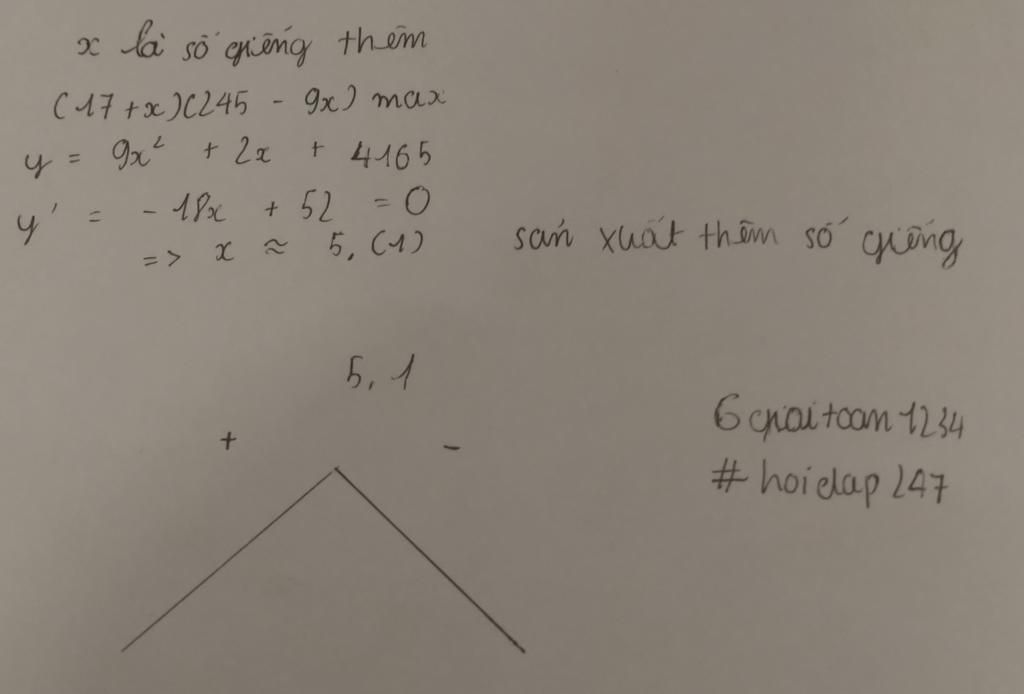 x là số giếng thêm
(17 + x)(245 - 9x) max
y = 9x² + 2x + 4165
y' = - 18x + 52 = 0
=> x ≈ 5,(1)
sản xuất thêm số giếng
5,1
+ -
6giaitoan1234
# hoidap247